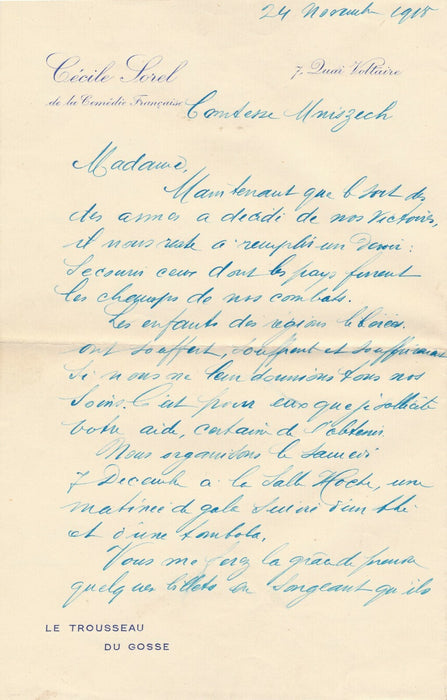 24 Novembre 1918
Cécile Sorel
7, Quai Voltaire
de la Comédie Française
Comtesse Mniszech
Madame,
Maintenant que le sort des
des armes a décidé de nos victoires,
il nous reste à remplir un devoir :
Secourir ceux dont les pays furent
les champs de nos combats.
Les enfants des régions libérées
ont souffert, souffrent et souffriraient
si nous ne leur donnions tous nos
soins. C'est pour eux que je sollicite
votre aide, certaine de l'obtenir.
Nous organisons le Samedi
7 Décembre à la Salle Hoche, une
matinée de gala suivie d'un thé
et d'une tombola.
Vous me ferez la grâce de prendre
quelques billets en songeant qu'ils
LE TROUSSEAU
DU GOSSE